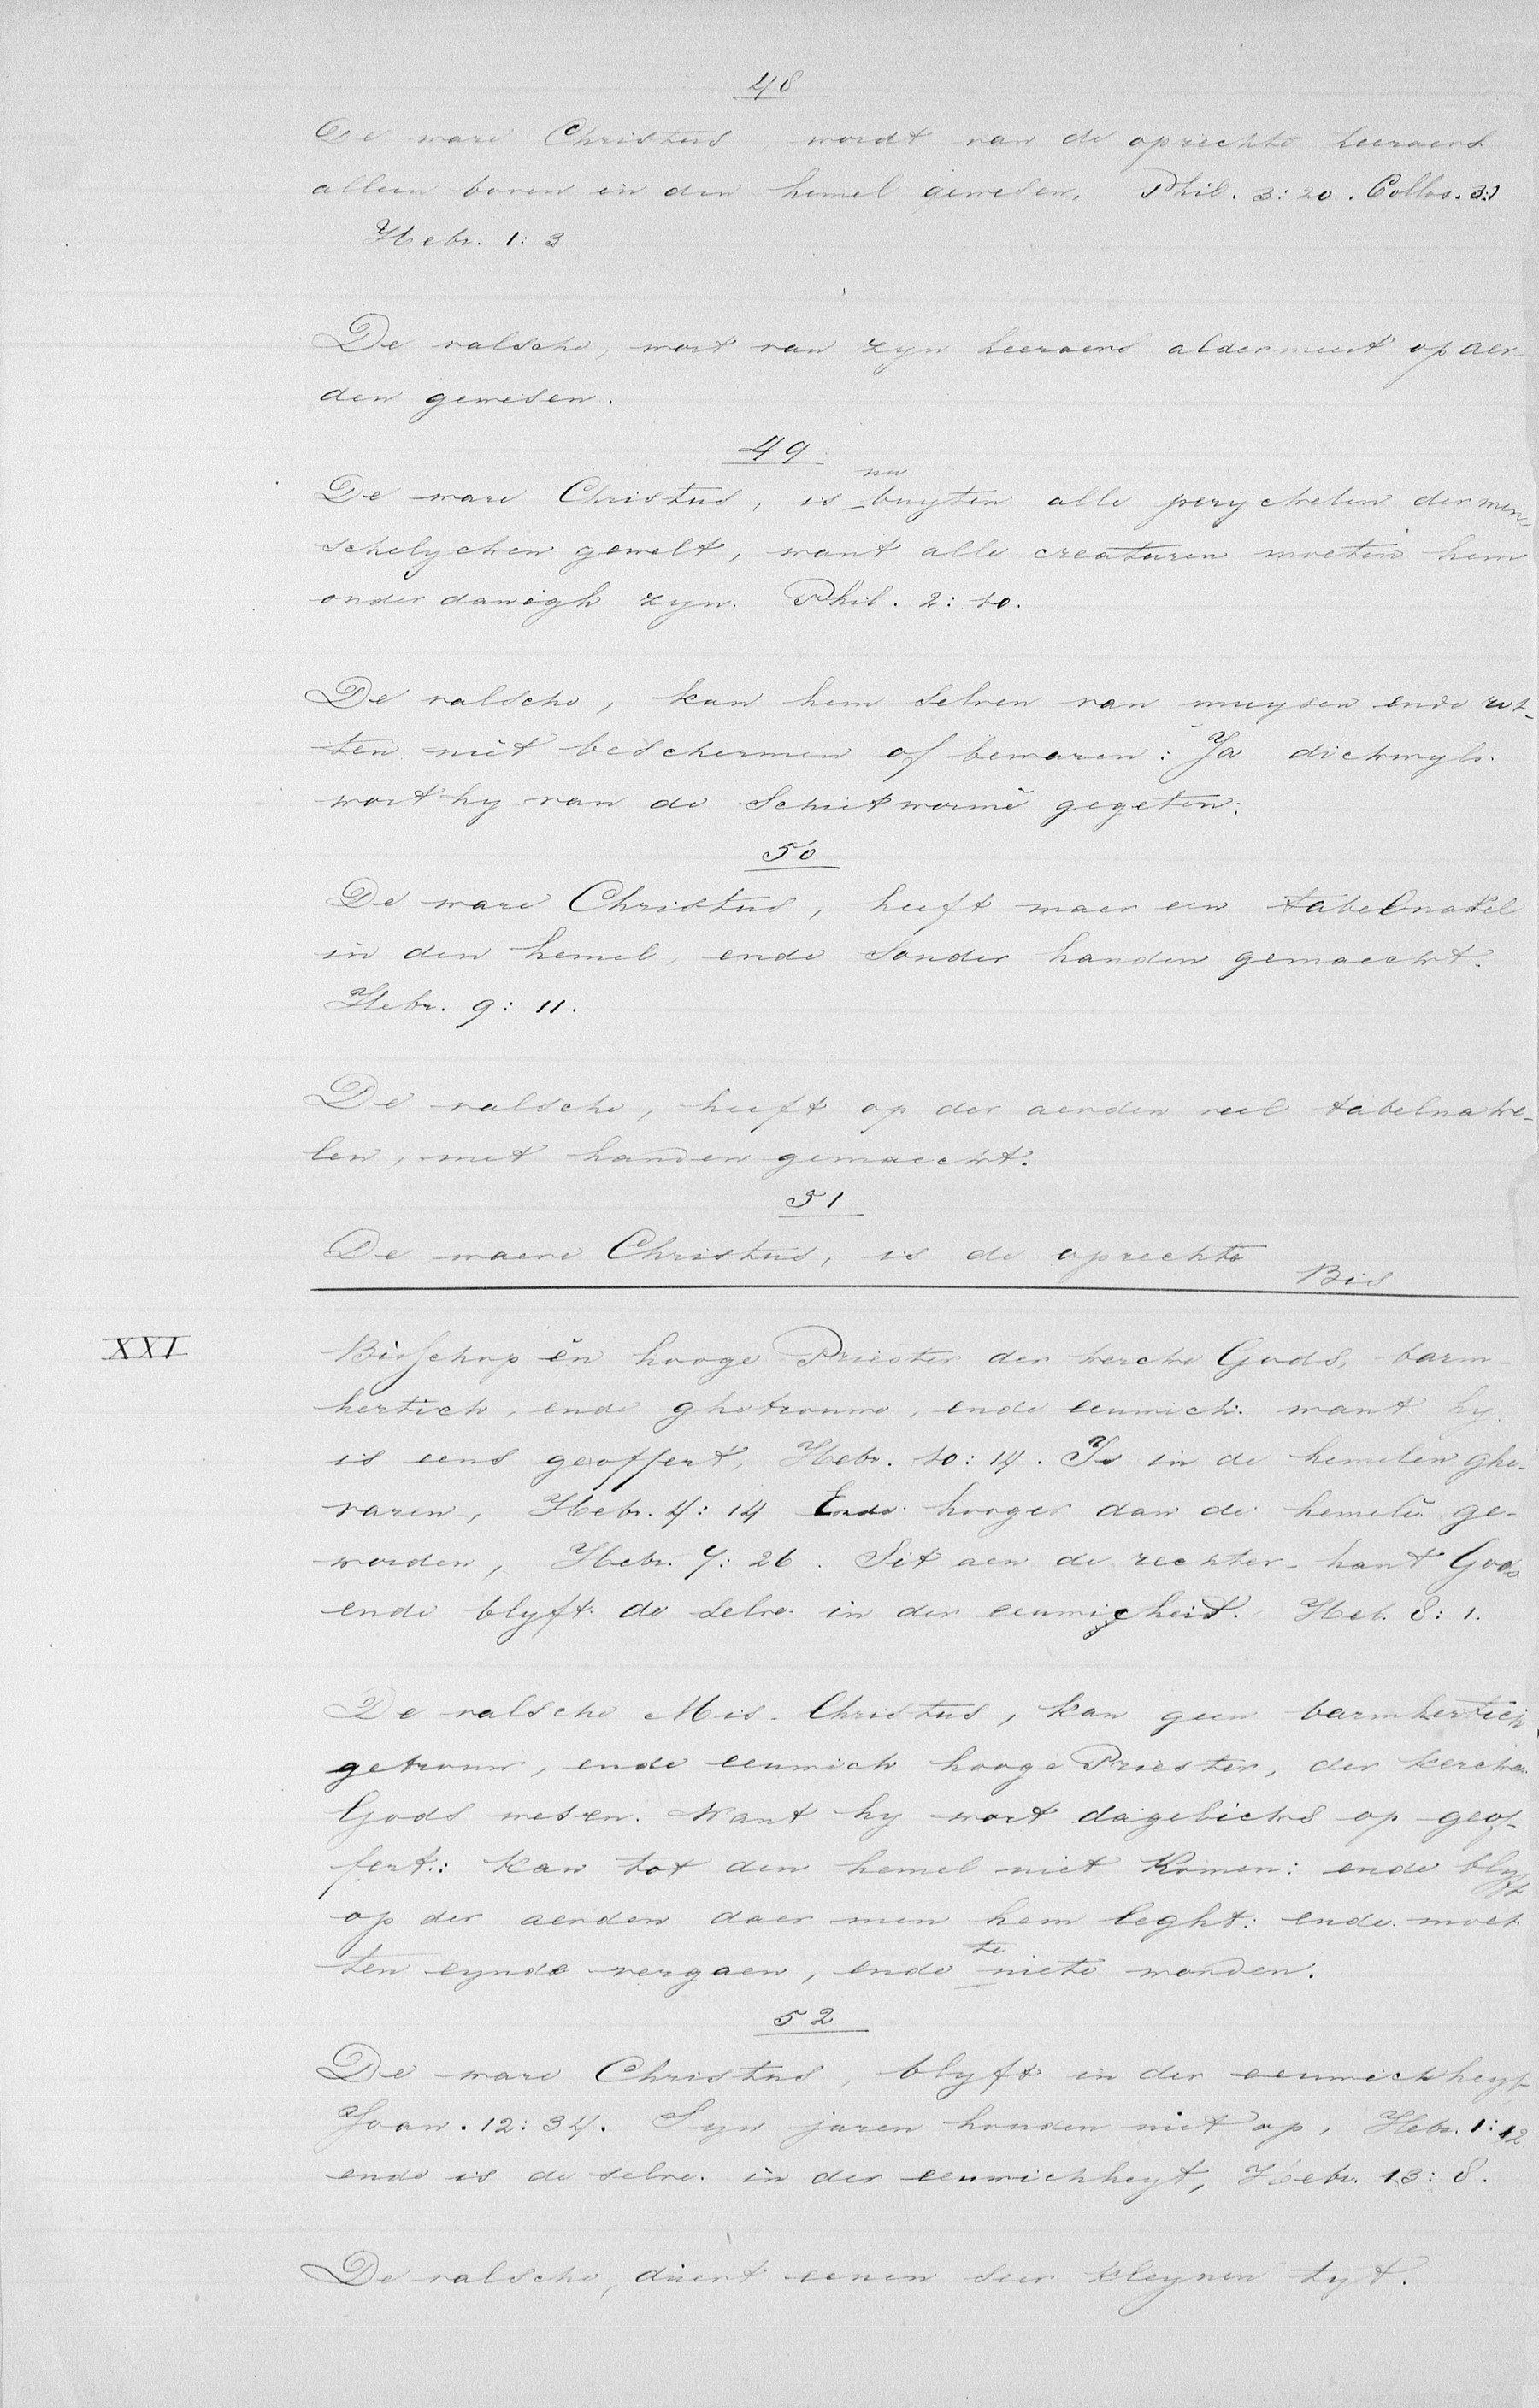 48
De ware Christus, wordt van de oprechte leeraers
alleen boven in den hemel gewesen, Phil. 3: 20. Collos. 3:1
Hebr. 1: 3
De valsche, wort van zyn leeraers aldermeest op aer-
den gewesen.
49
nu
De ware Christus, is buyten alle peryckelen der men-
schelycken gewelt, want alle creaturen moeten hem
onderdanigh zyn. Phil. 2: 10.
De valsche, kan hem selven van muysen ende rot-
ten niet beschermen of bewaren: Ja dickwyls
wort hy van de Schietwormē gegeten:
50
De ware Christus, heeft maer een tabelnakel
in den hemel, ende sonder handen gemaeckt.
Hebr. 9: 11.
De valsche, heeft op der aerden veel tabelnake-
len, met handen gemaeckt.
51
De waere Christus, is de oprechte
Bis
XXI
Bisschop ēn hooge Priester der kercke Gods, barm-
hertich, ende ghetrouwe, ende eeuwich: want hy
is eens geoffert, Hebr. 10: 14. Is in de hemelen ghe-
varen, Hebr. 4: 14 Ende hooger dan de hemelē ge-
worden, Hebr. 7: 26. Sit aen de rechter-hant Gods
ende blyft de selve in der eeuwicheit. Heb. 8: 1.
De valsche Mis-Christus, kan geen barmhertich
getrouw, ende eeuwich hooge Priester, der kercke
Gods wesen. Want hy wort dagelicks op geof-
fert: kan tot den hemel niet komen: ende blyft
op der aerden daer men hem leght: ende moet
te
ten eynde vergaen, ende niete worden.
52
De ware Christus, blyft in der eeuwickheyt
Joan. 12: 34. Syn jaren houden niet op, Hebr. 1: 12.
ende is de selve in der eeuwichheyt, Hebr. 13: 8.
De valsche, duert eenen seer kleynen tyt.